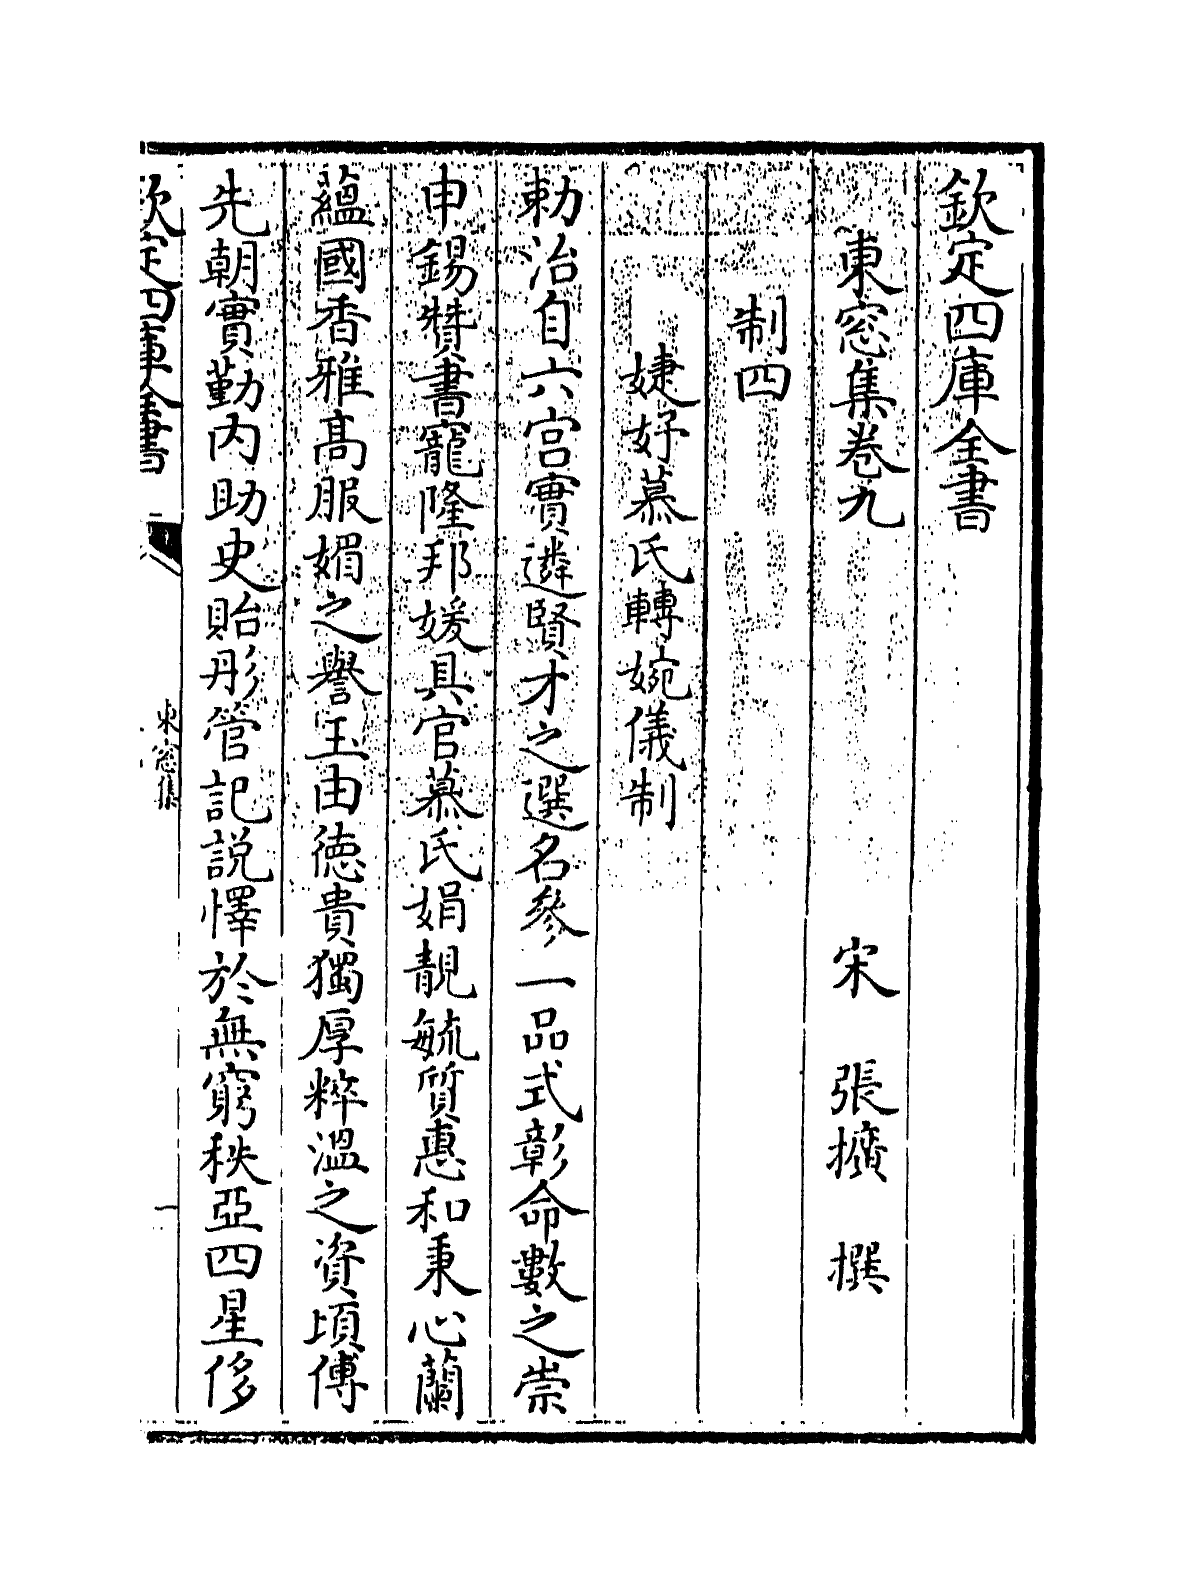 欽定四庫全書
東窓集卷九
宋 張擴 撰
制四
婕妤慕氏轉婉儀制
勅治自六宫實遴賢才之選名參一品式彰命數之崇
申錫贊書寵隆邦媛具官慕氏娟靚毓質惠和秉心蘭
蘊國香雅髙服媚之譽玉由徳貴獨厚粹溫之資頃傅
先朝實勤内助史貽彤管記説懌於無窮秩亞四星侈
欽定四庫全書
東窓集
一